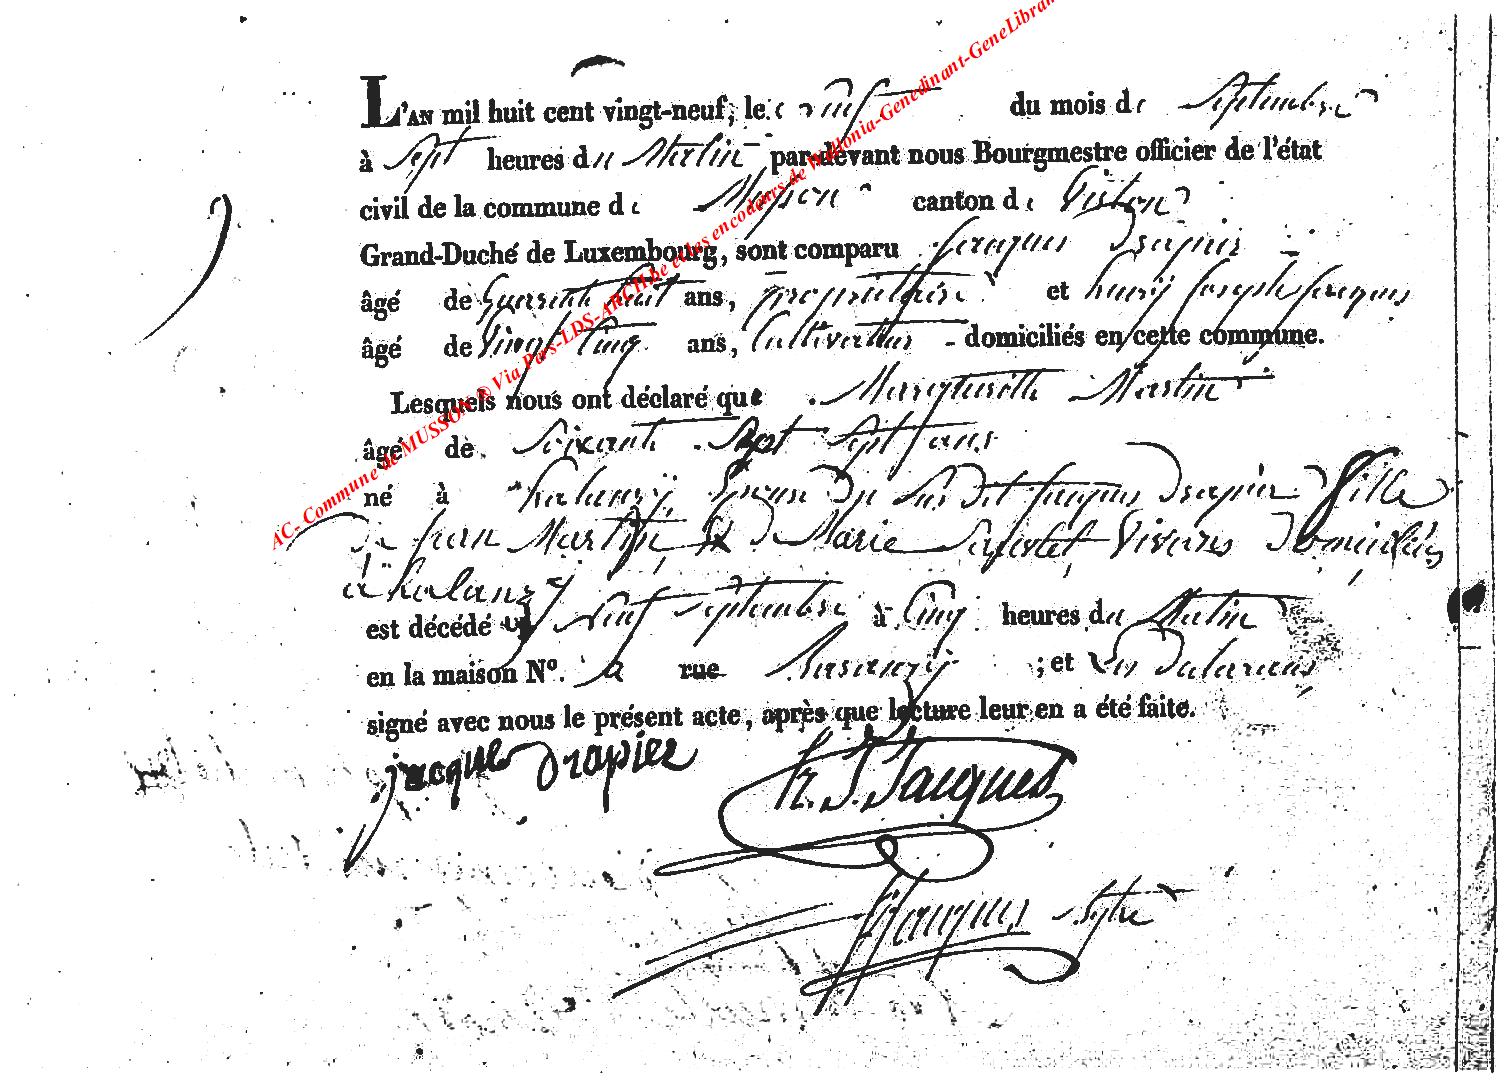 L'AN mil huit cent vingt-neuf, le neuf du mois de Septembre
à Sept heures du Matin par-devant nous Bourgmestre officier de l'état
civil de la commune de Musson canton de Virton
Grand-Duché de Luxembourg, sont comparu Jacques Drapier
âgé de Quarante huit ans, propriétaire et henry Joseph Jacques
âgé de Vingt Cinq ans, Cultivateur domiciliés en cette commune.
Lesquels nous ont déclaré que Margueritte Martin
âgé de Soixante Sept ans
né à halanzy Epouse du Sus dit Jacques Drapier fille
de Jean Martin & de Marie vivans Domiciliés
à halanzy
est décédé neuf Septembre à Cinq heures du Matin
en la maison N°. rue ; et les Déclarans
signé avec nous le présent acte, après que lecture leur en a été faite.
jacque Drapier
h. J. Jacques
Jacques
AC- Commune de MUSSON ® Via Pars-LDS-ARCH.be et les encodeurs de Wallonia-Genedinant-GeneLibran